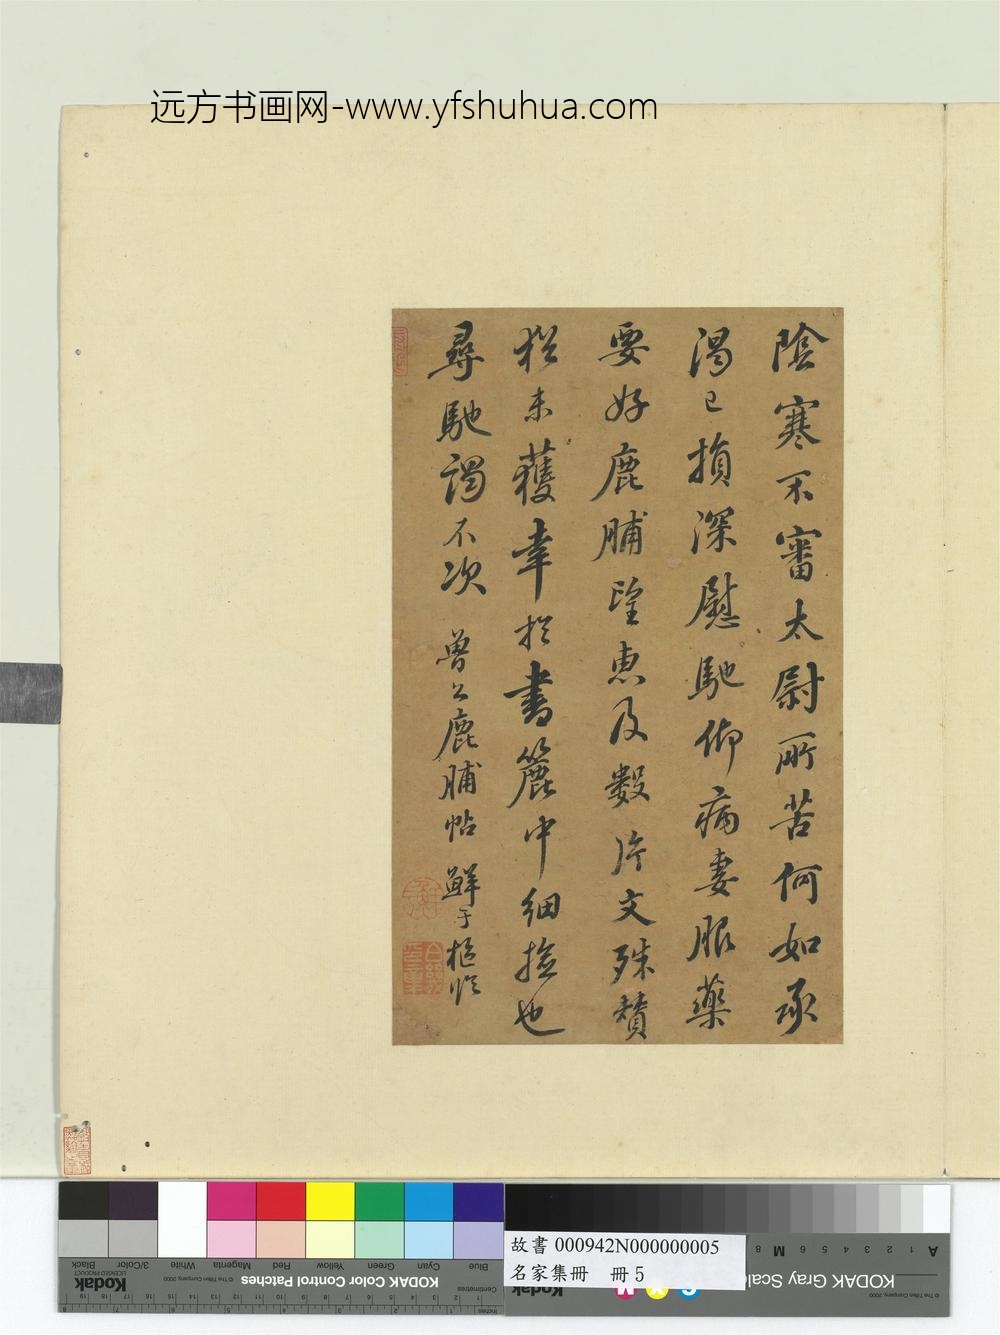 远方书画网-www.yfshuhua.com
陰寒不審太尉所苦何如承
渴已損深慰馳仰病妻服藥
要好鹿脯望惠及數片文殊贊
猶未獲幸於書簏中細撿也
尋馳謁不次 魯公鹿脯帖 鮮于樞臨
故書 000942N000000005
名家集冊 冊 5
KODAK Color Control Patches
© The Tiffen Company, 2000
Kodak
LICENSED PRODUCT
Blue Cyan Green Yellow Red Magenta White 3/Color Black
Centimetres
Inches
KODAK Gray Scale
© The Tiffen Company, 2000
A 1 2 3 4 5 6 M 8